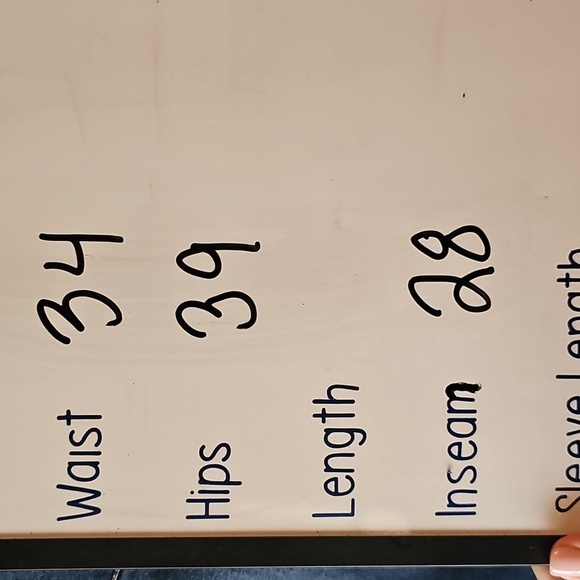 Waist 34
Hips 39
Length
Inseam 28
Sleeve Length